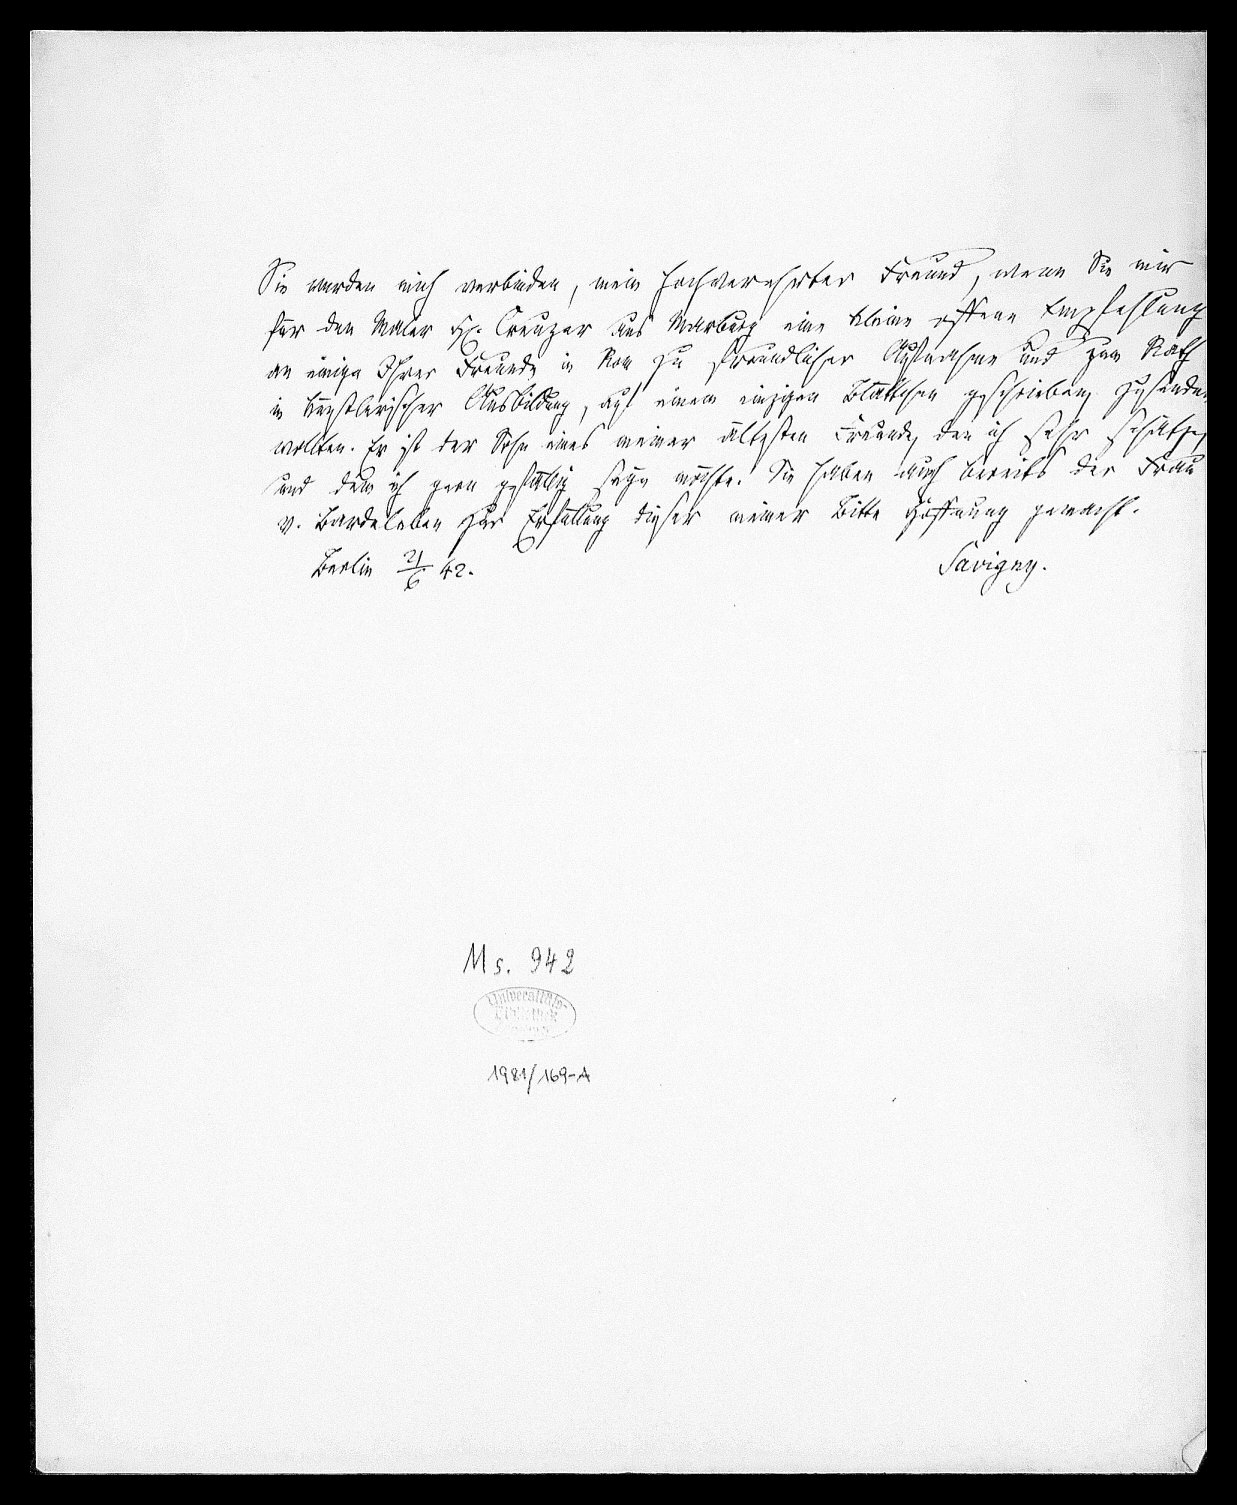 Sie würden mich verbinden, mein hochverehrter Freund, wenn Sie mir
für den Maler H. Creuzer aus Marburg eine kleine offene Empfehlung
an einige Ihrer Freunde in Rom zu freundlicher Aufnahme und zum Rath
in künstlerischer Ausbildung, auf einem einzigen Blättchen geschrieben, zusenden
wollten. Er ist der Sohn eines meiner ältesten Freunde, den ich sehr schätze,
und dem ich gern gefällig seyn möchte. Sie haben auch bereits der Frau
v. Bardeleben zur Erfüllung dieser meiner Bitte Hoffnung gemacht.
Berlin 21/6 42. Savigny.
Ms. 942
Universitäts-
Bibliothek
1981/169-A